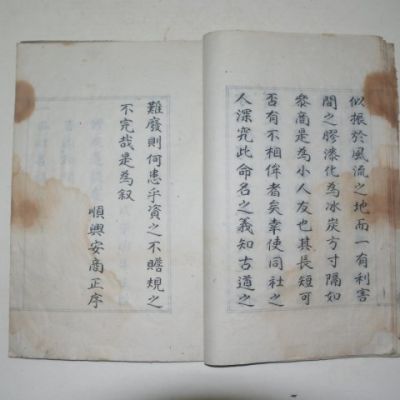 似振於風流之地而一有利害
間之膠漆化為冰炭方寸隔如
參商是為小人友也其長短可
否有不相侔者矣幸使同社之
人深究此命名之義知古道之
難廢則何患乎資之不贍規之
不完哉是為叙
順興安商正序